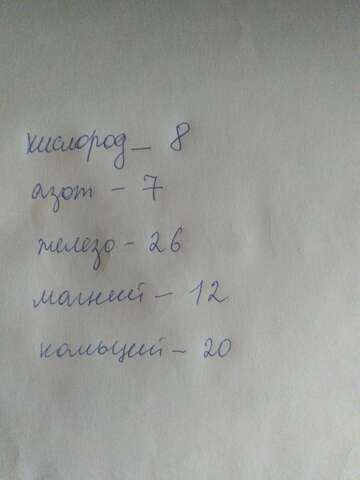 кислород - 8
азот - 7
железо - 26
магний - 12
кальций - 20